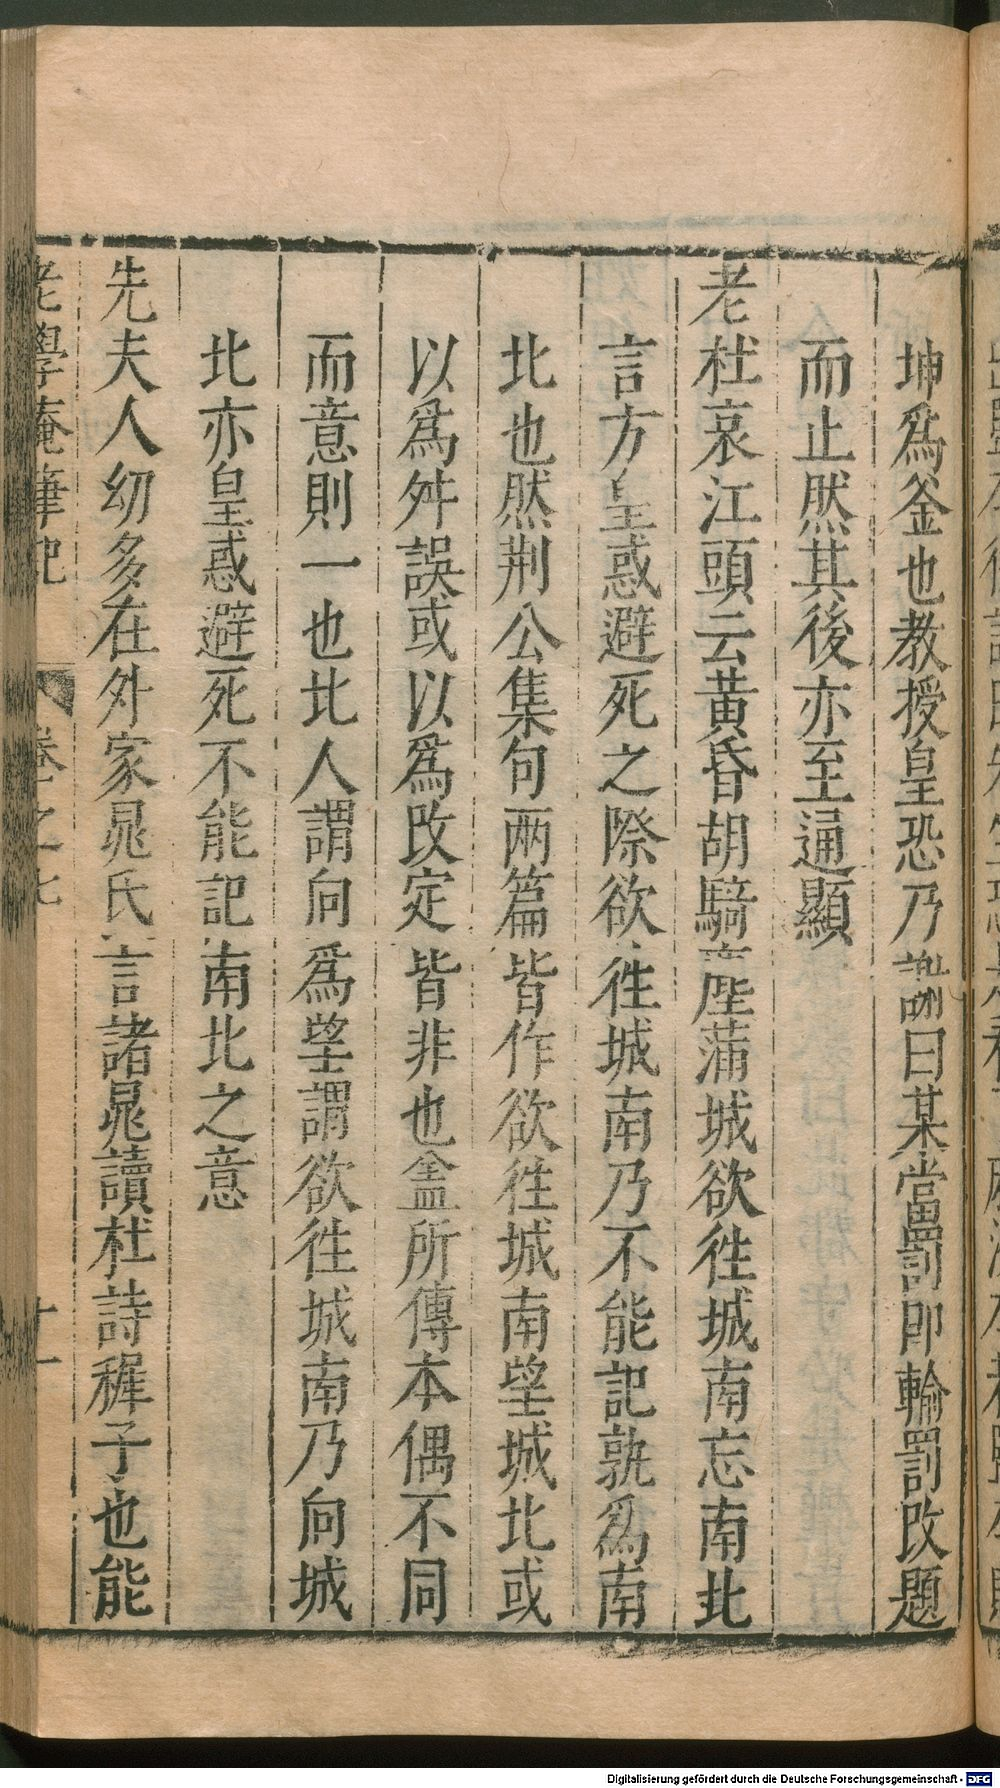 坤爲釜也教授皇恐乃謝曰某當罰即輸罰改題
而止然其後亦至通顯
老杜哀江頭云黃昏胡騎塵蒲城欲往城南忘南北
言方皇惑避死之際欲往城南乃不能記孰爲南
北也然荆公集句兩篇皆作欲往城南望城北或
以爲舛誤或以爲改定皆非也盖所傳本偶不同
而意則一也北人謂向爲望謂欲往城南乃向城
北亦皇惑避死不能記南北之意
先夫人幼多在外家晁氏言諸晁讀杜詩稺子也能
老學庵筆記 卷之七 十一
Digitalisierung gefördert durch die Deutsche Forschungsgemeinschaft - DFG